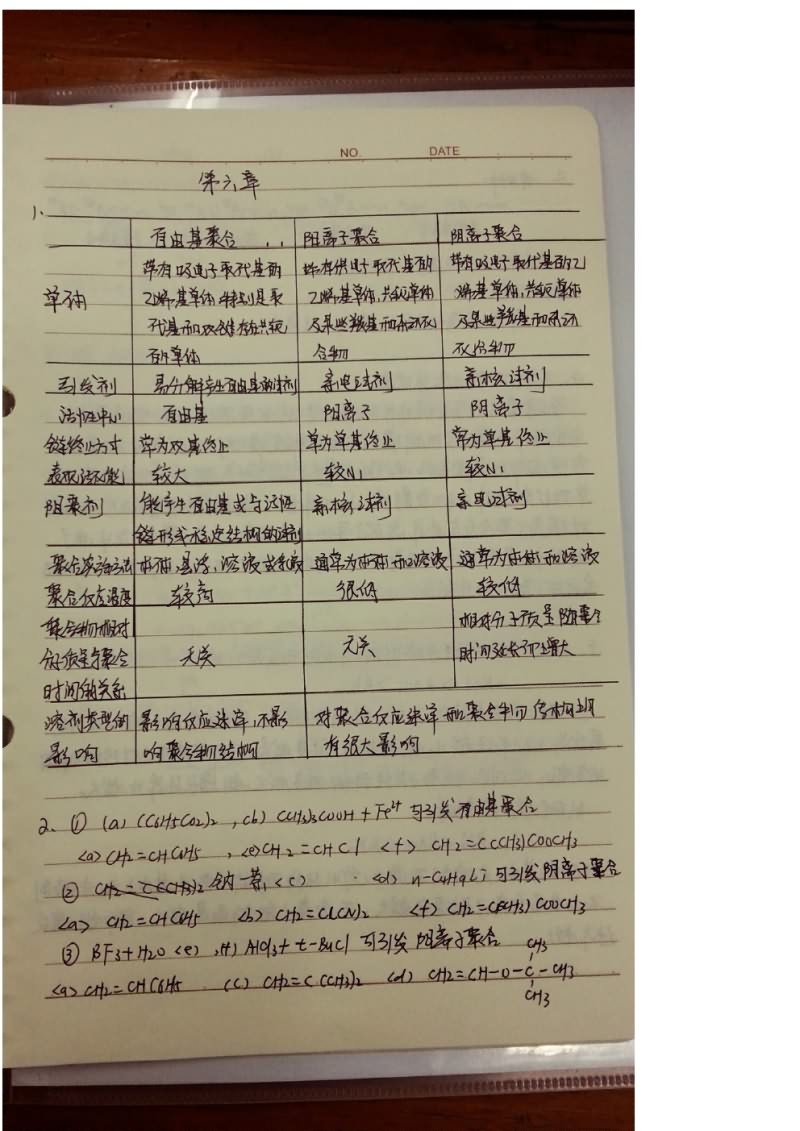 NO. DATE
第六章
1、
自由基聚合 阳离子聚合 阴离子聚合
单体
带有吸电子取代基的 带有供电子取代基的 带有吸电子取代基的乙
乙烯基单体,特别是取 乙烯基单体,共轭单体 烯基单体,共轭单体
代基和双键存在共轭 及某些羰基和杂环化 及某些羰基和杂环
的单体 合物 化合物
引发剂 易分解产生自由基的试剂 亲电试剂 亲核试剂
活性中心 自由基 阳离子 阴离子
链终止方式 常为双基终止 常为单基终止 常为单基终止
表观活化能 较大 较小 较小
阻聚剂 能产生自由基或与活性 亲核试剂 亲电试剂
链形成稳定结构的试剂
聚合实施方法 本体,悬浮,溶液或乳液 通常为本体和溶液 通常为本体和溶液
聚合反应温度 较高 很低 较低
聚合物相对 相对分子质量随聚合
分子质量与聚合 无关 无关 时间延长而增大
时间的关系
溶剂类型的 影响反应速率,不影 对聚合反应速率和聚合物结构均
影响 响聚合物结构 有很大影响
2、① (a) (C6H5CO2)2 , (b) (CH3)3COOH + Fe²⁺ 可引发自由基聚合
<a> CH2=CHC6H5 , <e> CH2=CHCl <f> CH2=C(CH3)COOCH3
② 钠-萘,<c> <d> n-C4H9Li 可引发阴离子聚合
<a> CH2=CHC6H5 <b> CH2=C(CN)2 <f> CH2=C(CH3)COOCH3
③ BF3+H2O <e> ,(f) AlCl3+t-BuCl 可引发阳离子聚合
CH3
<a> CH2=CHC6H5 (c) CH2=C(CH3)2 <d> CH2=CH-O-C-CH3
CH3